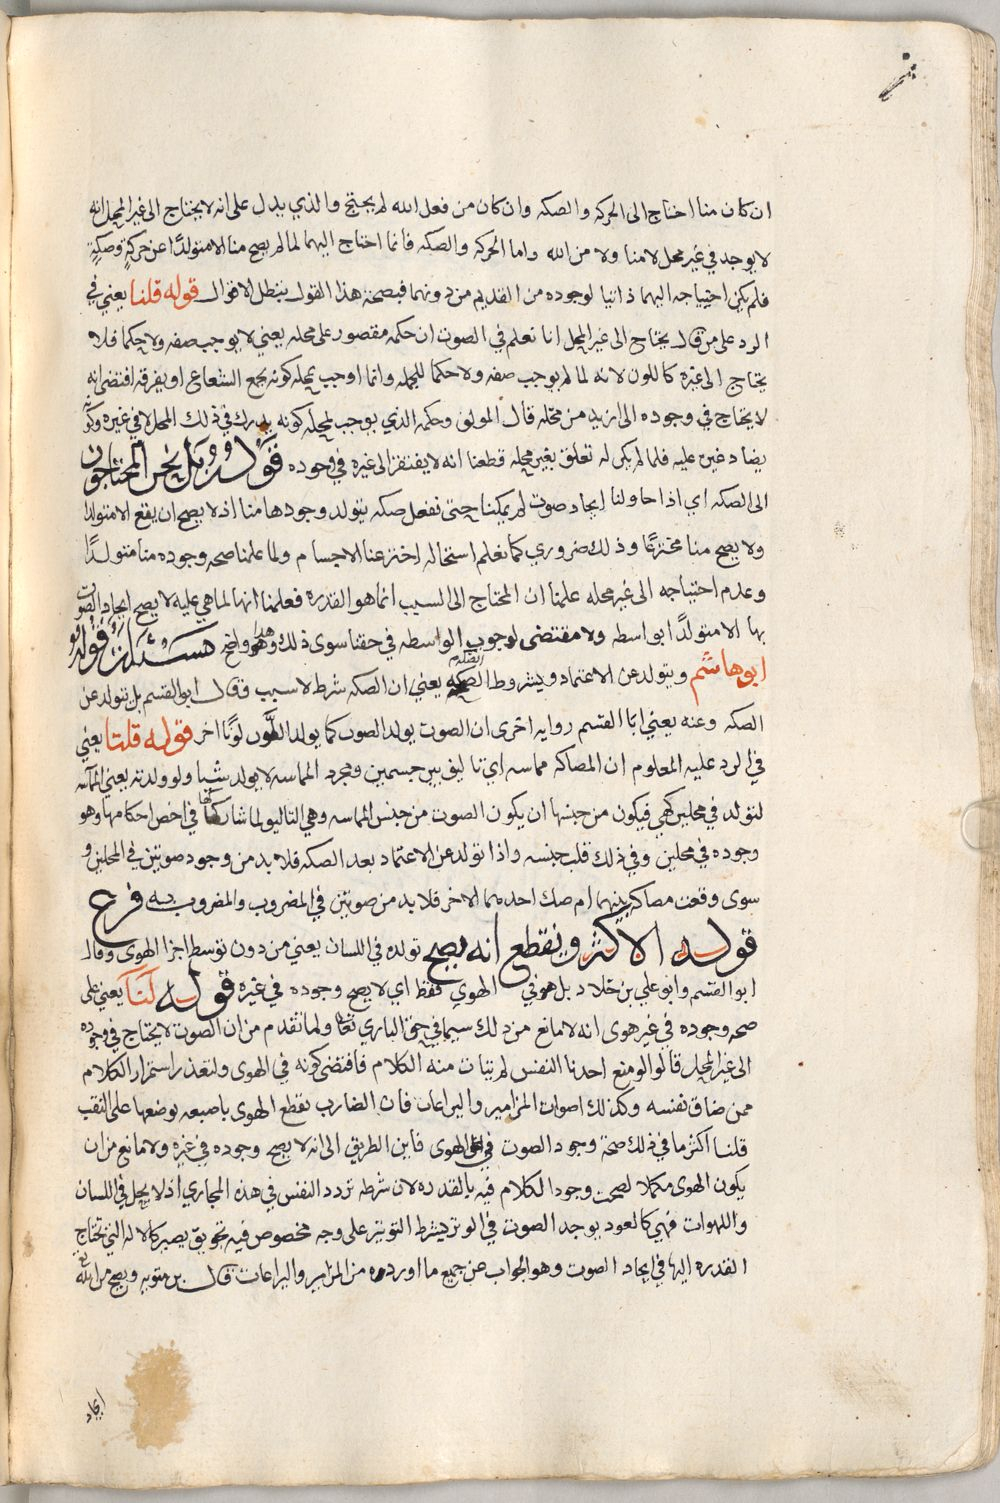 ان كان منا احتاج الى الحركه والصكه وان كان من فعل الله لم يحتج والذي يدل على انه لا يحتاج الى غير المحل انه
لا يوجد في غير محل لا منا ولا من الله واما الحركه والصكه فانما احتاج اليهما لما لم يصح منا الا متولدًا عن حركةٍ وصكةٍ
فلم يكن احتياجه اليهما ذاتيا لوجوده من القديم من دونهما فبصحة هذا القول يبطل الاقوال قوله قلنا يعني في
الرد على من قال يحتاج الى غير المحل انا نعلم في الصوت ان حكمه مقصور على محله يعني لا يوجب صفه ولا حكما فلا
يحتاج الى غيره كاللون لانه لما لم يوجب صفه ولا حكما للجمله وانما اوجب لمحله كونه يجمع الشعاع او يفرقه اقتضى انه
لا يحتاج في وجوده الى ازيد من محله قال المولف وحكمه الذي يوجب لمحله كونه يدرك في ذلك المحل لا في غيره وكونه
يضاد غيره عليه فلما لم يكن له تعلق بغير محله قطعنا انه لا يفتقر الى غيره في وجوده قوله بل نحن المحتاجون
الى الصكه اي اذا حاولنا ايجاد صوت لم يمكنا حتى نفعل صكه يتولد وجودها منا اذ لا يصح ان يقع الا متولدا
ولا يصح منا مخترعًا وذلك ضروري كما نعلم استحالة اختراعنا الاجسام ولما علمنا صحه وجوده منا متولدًا
وعدم احتياجه الى غير محله علمنا ان المحتاج الى السبب انما هو القدره فعلمنا انها لما هي عليه لا يصح ايجاد الصوت
بها الا متولدًا ابواسطه ولا مقتضى لوجوب الواسطه في حقنا سوى ذلك وهذا واضح مسئلة قوله
ابو هاشم ويتولد عن الاعتماد ويشروط الصكه يعني ان الصكه شرط لا سبب فقال ابو القسم بل يتولد عن
الصكه وعنه يعني ابا القسم روايه اخرى ان الصوت يولد الصوت كما يولد اللون لونًا اخر قوله قلنا يعني
في الرد عليه المعلوم ان المصاكه مماسه اي تاليف بين جسمين ومجرد المماسه لا يولد شيا ولو ولدته يعني المماسه
لتولد في محلين كهي فيكون من جنسها ان يكون الصوت من جنس المماسه وهي التاليف لما شاركها في اخص احكامها وهو
وجوده في محلين وفي ذلك قلب جنسه واذا تولد عن الاعتماد بعد الصكه فلا بد من وجود صوتين في المحلين و
سوى وقعت مصاكه بينهما ام صك احدهما الاخر فلا بد من صوتين في المضروب والمضروب به فرع
قوله الاكثر ويقطع انه يصح تولده في اللسان يعني من دون توسط اجزا الهوى وقال
ابو القسم وابو علي بن خلاد بل هو في الهوي فقط اي لا يصح وجوده في غيره قوله لنا يعني على
صحه وجوده في غير هوى انه لا مانع من ذلك سيما في حق الباري تعا ولما تقدم من ان الصوت لا يحتاج في وجوده
الى غير المحل قالوا لو منع احدنا النفس لم يتات منه الكلام فاقتضى كونه في الهوى ولتعذر استمرار الكلام
ممن ضاق نفسه وكذلك اصوات المزامير واليراعات فان الضارب يقطع الهوى باصبعه بوضعها على الثقب
قلنا اكثر ما في ذلك صحة وجود الصوت في الهوى فاين الطريق الى انه لا يصح وجوده في غيره ولا مانع من ان
يكون الهوى مكملا لصحت وجود الكلام فيه بالقدره لان شرطه تردد النفس في هذه المجاري اذ لا يحل في اللسان
واللهوات فهي كالعود يوجد الصوت في الوتر بشرط التوتير على وجه مخصوص فيه تجويق يصير كالاله التي تحتاج
القدره اليها في ايجاد الصوت وهو الجواب عن جميع ما اوردوه من المزامير واليراعات قال بن متويه ويصح من الله تعا
ايجاد